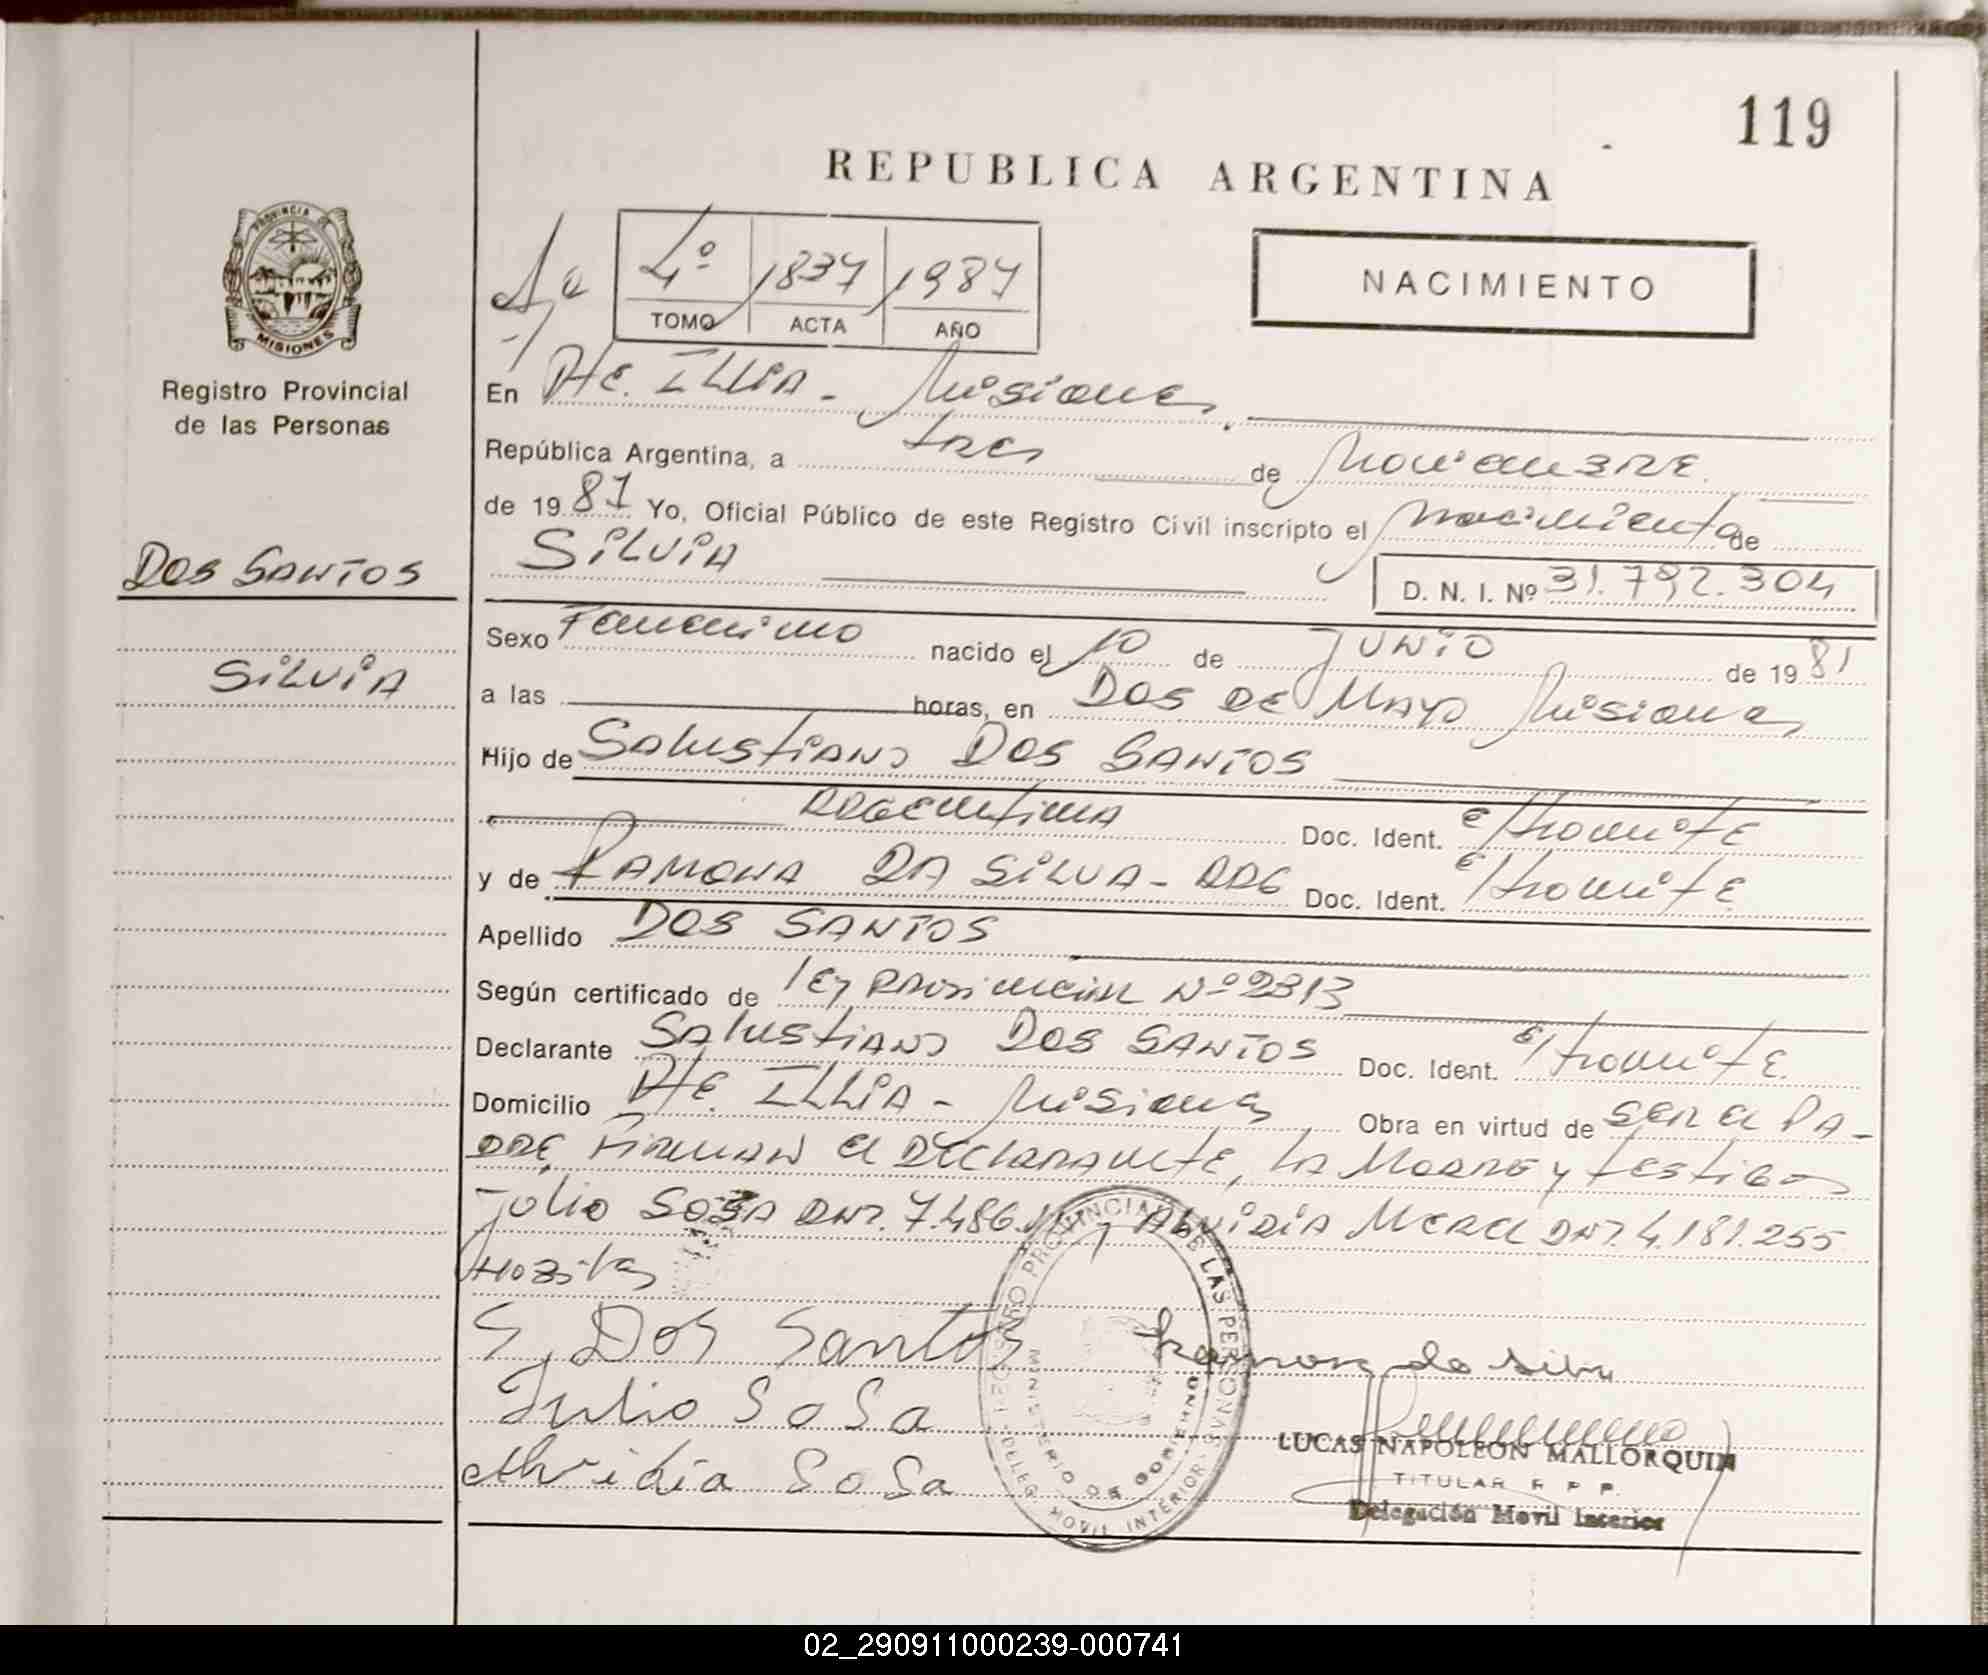 119
REPUBLICA ARGENTINA
PROVINCIA DE
MISIONES
Registro Provincial
de las Personas
4º 1837 1987
TOMO ACTA AÑO
NACIMIENTO
En Pte. ILLIA - Misiones
República Argentina, a tres de Noviembre
de 1987 Yo, Oficial Público de este Registro Civil inscripto el Nacimiento de
SILVIA D. N. I. Nº 31.792.304
DOS SANTOS
SILVIA
Sexo Femenino nacido el 10 de JUNIO de 1981
a las horas, en DOS DE MAYO Misiones
Hijo de Salustiano DOS SANTOS
Argentina Doc. Ident. e/tramite
y de RAMONA DA SILVA - ARG Doc. Ident. e/tramite
Apellido DOS SANTOS
Según certificado de ley Provincial Nº 2313
Declarante Salustiano DOS SANTOS Doc. Ident. e/tramite
Domicilio Pte. ILLIA - Misiones Obra en virtud de ser el PA-
DRE, Firman el Declarante, la Madre y testigos
Julio SOSA DNI. 7.486. y Alvidia Merel DNI. 4.181.255
S, Dos Santos
Ramona da silva
Julio SoSa
Alvidia SoSa
REGISTRO PROVINCIAL DE LAS PERSONAS
MINISTERIO DE GOBIERNO
DELEG. MOVIL INTERIOR
LUCAS NAPOLEON MALLORQUIN
TITULAR R P P.
Delegación Movil Interior
02_290911000239-000741